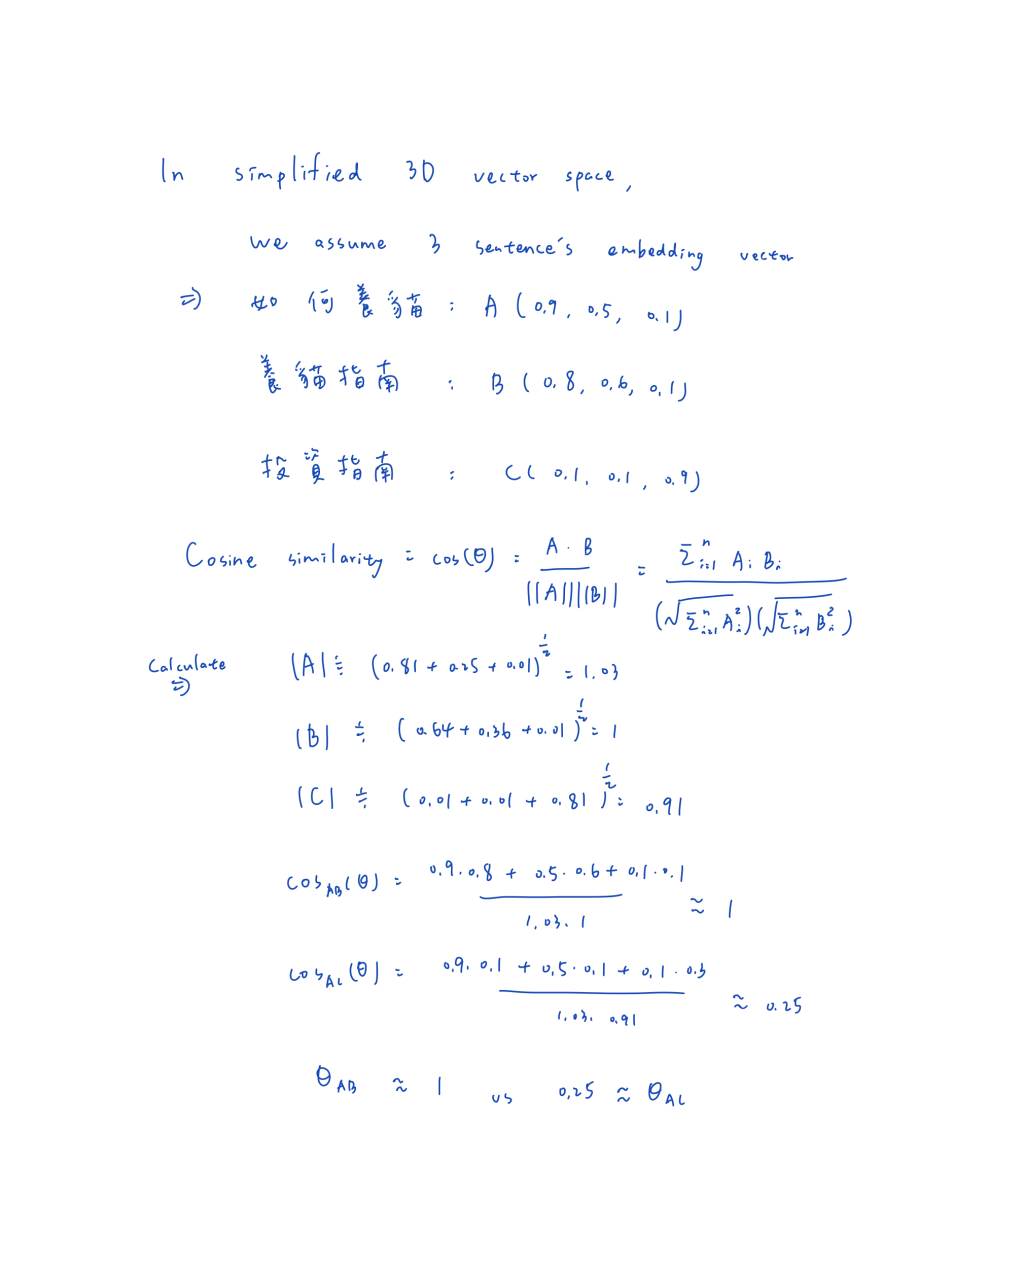 In simplified 3D vector space,
we assume 3 sentence's embedding vector
⇒ 如何養貓 : A (0.9, 0.5, 0.1)
養貓指南 : B (0.8, 0.6, 0.1)
投資指南 : C( 0.1, 0.1, 0.9)
Cosine similarity = cos(θ) = A · B / ||A|| ||B|| = Σⁿᵢ₌₁ Aᵢ Bᵢ / (√Σⁿᵢ₌₁ Aᵢ²)(√Σⁿᵢ₌₁ Bᵢ²)
Calculate ⇒ |A| ≑ (0.81 + 0.25 + 0.01)^½ = 1.03
|B| ≑ (0.64 + 0.36 + 0.01)^½ = 1
|C| ≑ (0.01 + 0.01 + 0.81)^½ = 0.91
cos_AB(θ) = 0.9 · 0.8 + 0.5 · 0.6 + 0.1 · 0.1 / 1.03 · 1 ≈ 1
cos_AC(θ) = 0.9 · 0.1 + 0.5 · 0.1 + 0.1 · 0.3 / 1.03 · 0.91 ≈ 0.25
θ_AB ≈ 1 vs 0.25 ≈ θ_AC